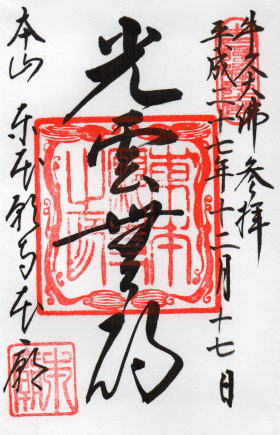 牛久大佛参拝
平成二十七年十二月十七日
光雲無碍
東本願寺之印
本山 東本願寺本廟